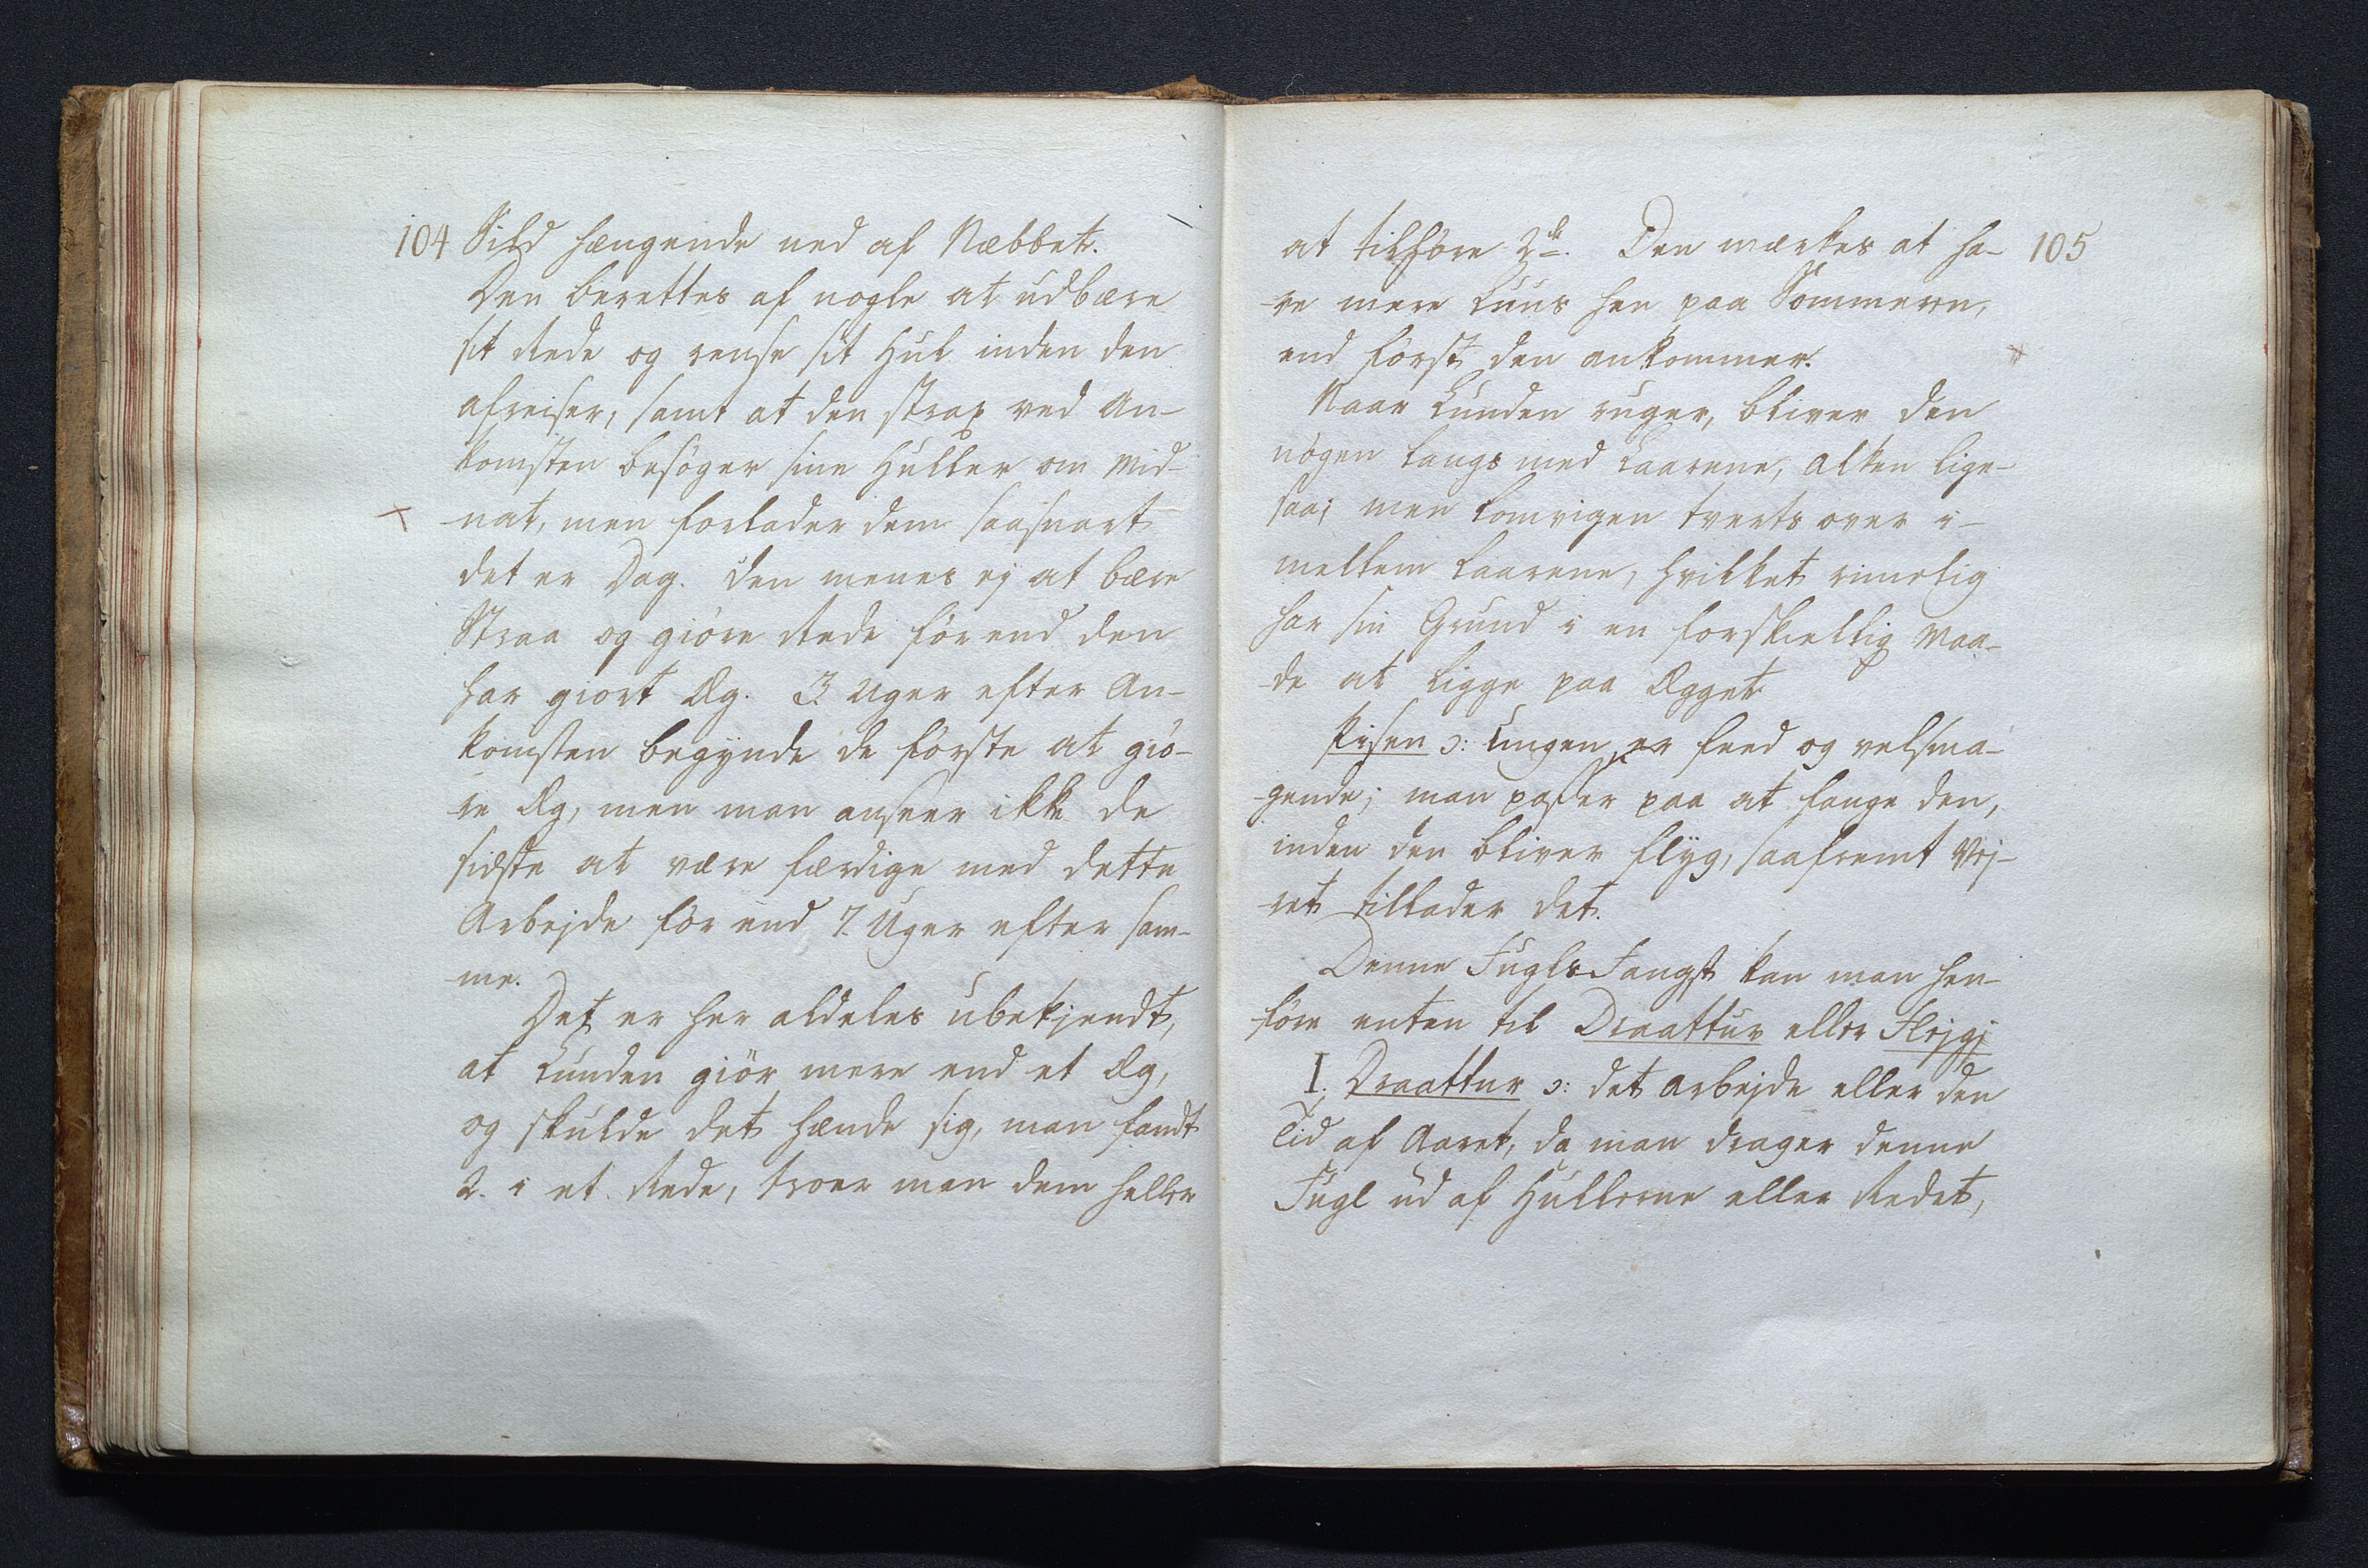 104 Sild hængende ned af Næbbet.
Den berettes af nogle at udbære
sit Rede og rense sit Hul inden den
afreiser, samt at den strax ved An-
komsten besøger sine Huller om Mid-
nat, men forlader dem saasnart
det er Dag. Den menes ej at bære
Straa og giøre Rede førend den
har giort Æg. 3. Uger efter An-
komsten begynde de første at giø-
re Æg, men man anseer ikke de
sidste at være færdige med dette
Arbejde før end 7. Uger efter sam-
me.
Det er her aldeles ubekjendt,
at Lunden giør mere end et Æg,
og skulde det hænde sig, man fandt
2. i et Rede, troer man dem heller
at tilhøre 2de. Den mærkes at ha- 105
ve mere Luus hen paa Sommeren,
end først den ankommer.
Naar Lunden ruger, bliver den
nøgen langs med Laarene, Alken lige-
saa; men Lomvigen tverts over i-
mellem Laarene, hvilket rimelig
har sin Grund i en forskiellig Maa-
de at ligge paa Ægget
Pisen ɔ: Ungen, er feed og velsma-
gende; man passer paa at fange den,
inden den bliver flyg, saafremt Vej-
ret tillader det.
Denne Fugls Fangst kan man hen-
føre enten til Draattur eller Flejgj
I. Draattur ɔ: det Arbejde eller den
Tid af Aaret, da man drager denne
Fugl ud af Hullerne eller Redet,